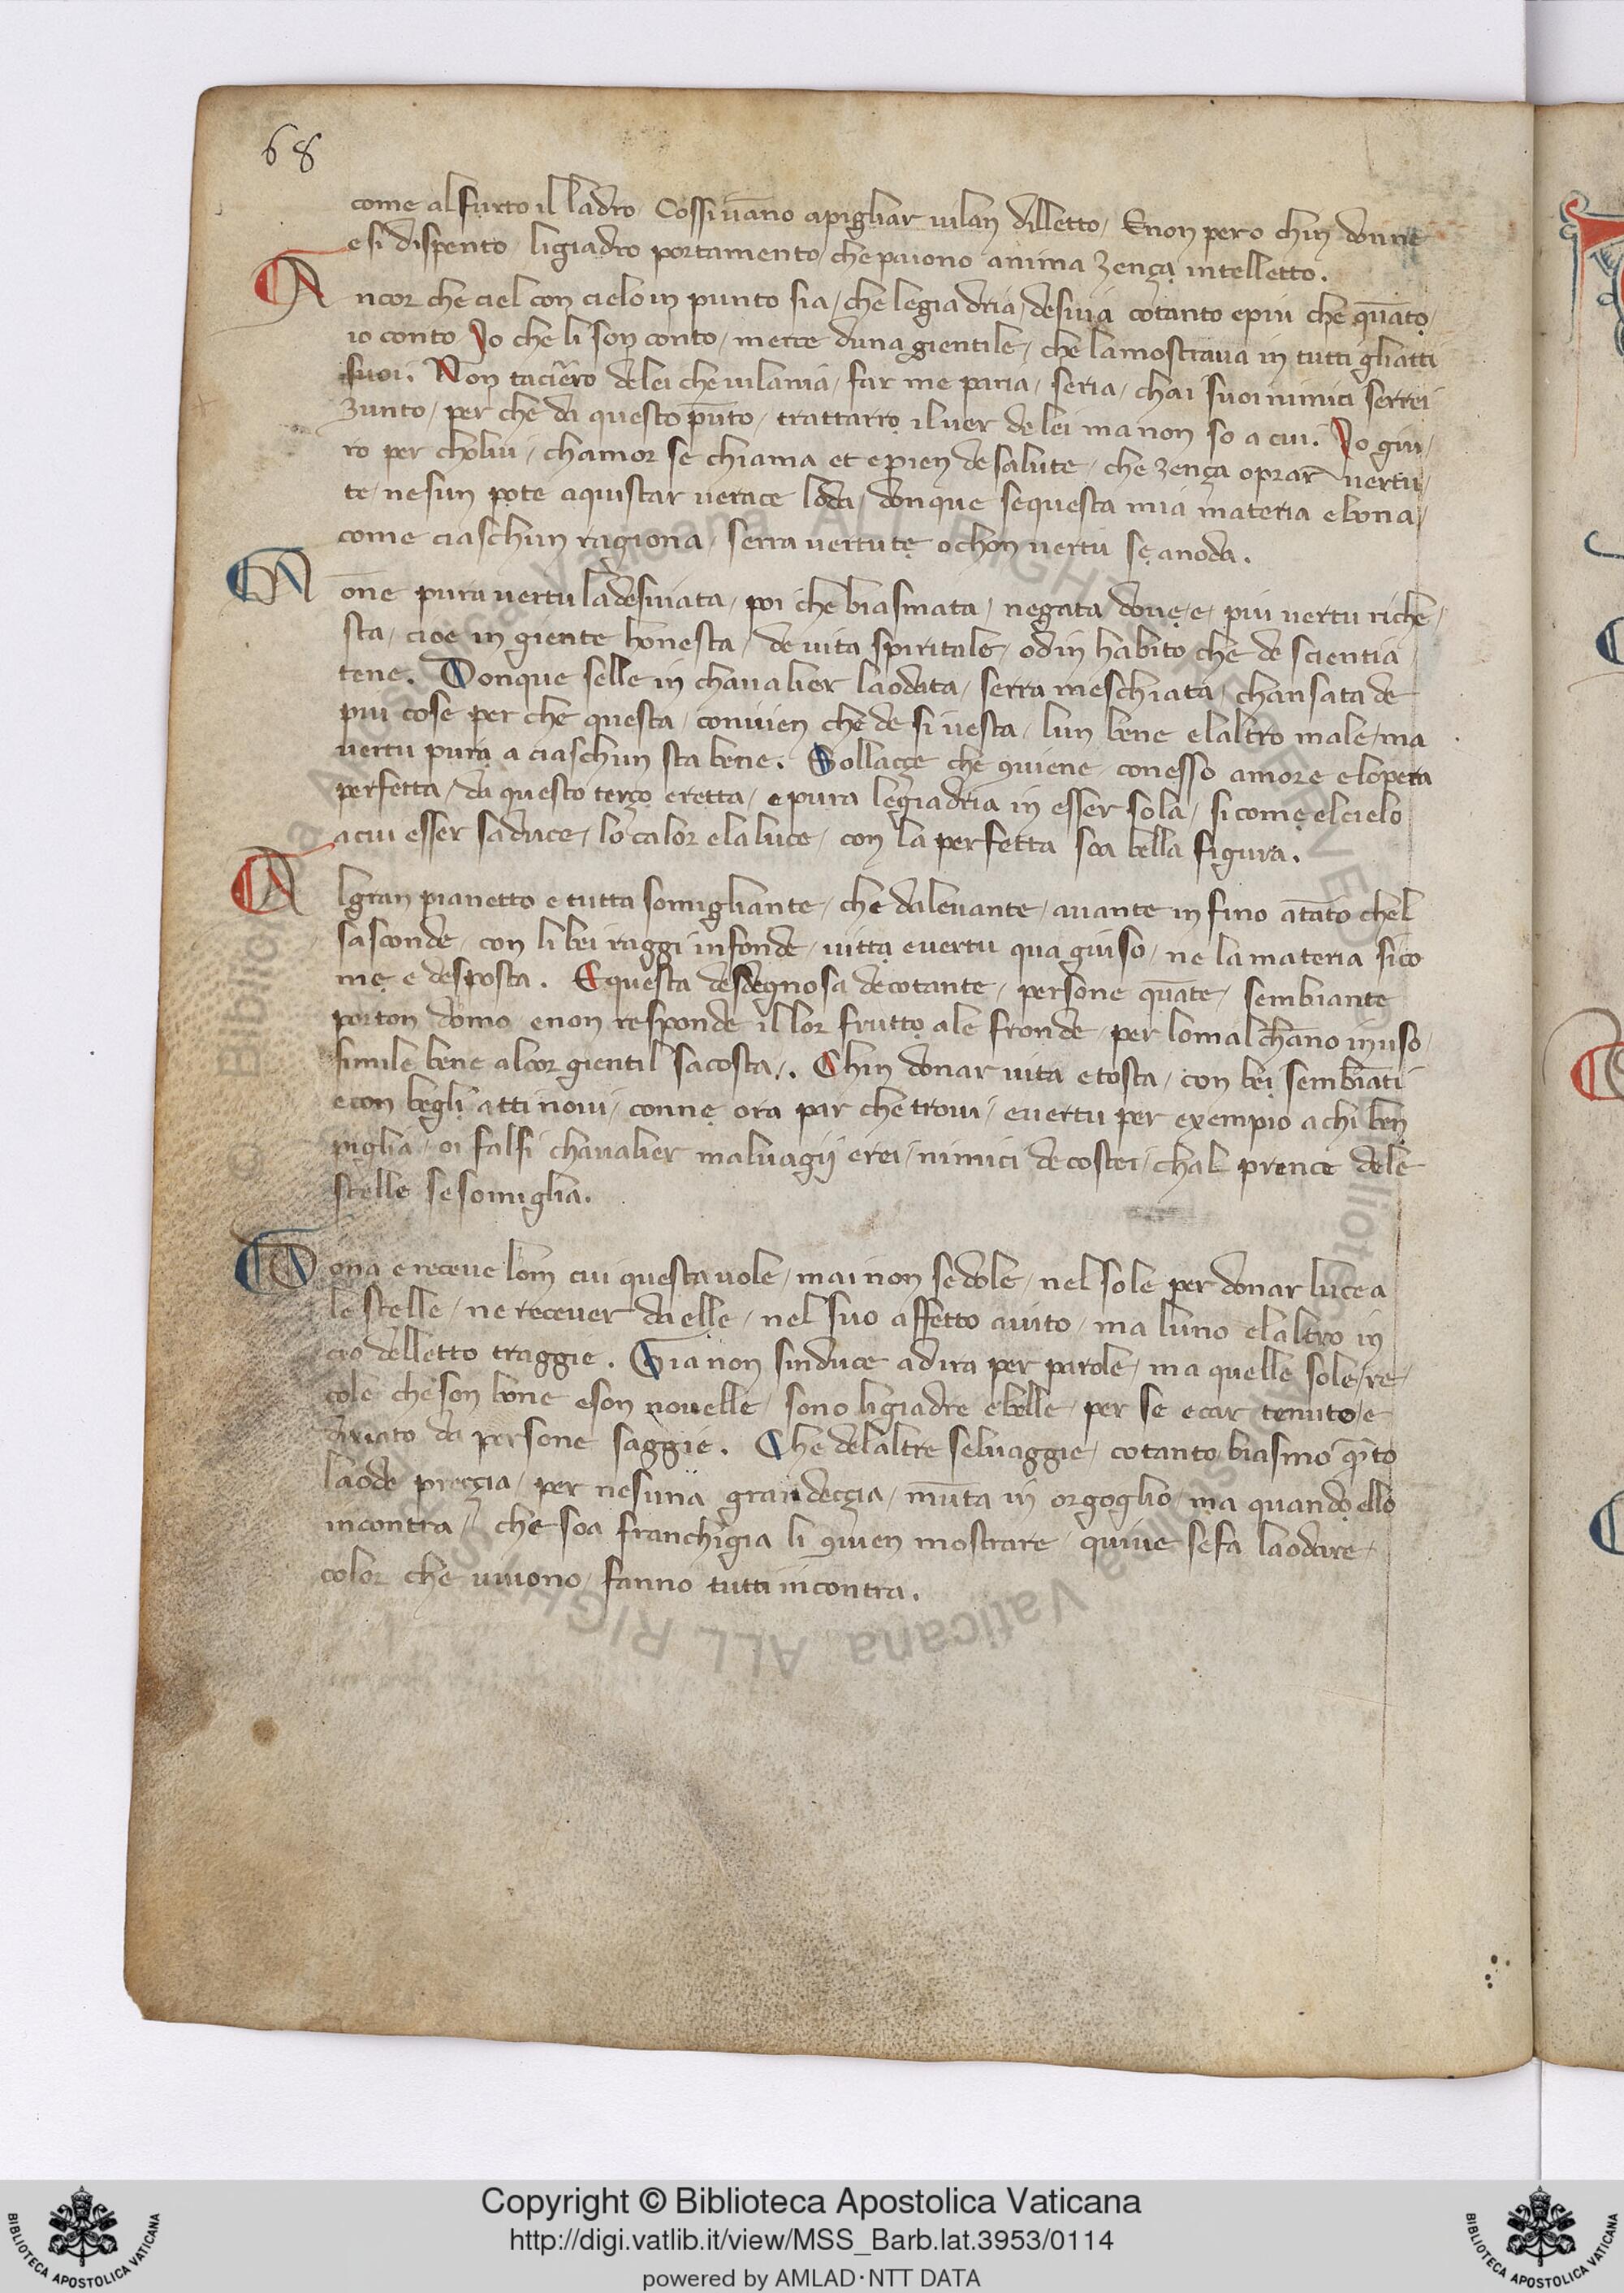 68
come al furto il ladro. Cossi uāno apigliar uilan dilletto / Enon pero chin donne
e si dispento / ligiadro portamento / che paiono anima zença intelletto.
Ancor che ciel con cielo in punto sia / che legiadria / desuia cotanto epiu che quāto /
io conto Io che li son conto / merce duna gientile / che lamostraua in tutti gliatti
suoi. Non tacierò delei che uilania / far me paria / seria / chai suoi nimici serrei
zunto / per che da questo pūto / trattarro iluer de lei ma non so a cui. Io giu /
ro per cholui / chamor se chiama et e pien de salute / che zença oprar uertu /
te / nesun pote aquistar uerace loda / donque sequesta mia materia e bona /
come ciaschun ragiona / serra uertute o chon uertu se anoda.
Nōne pura uertu la desuiata / poi che biasmata / negata doue / e / piu uertu riche /
sta / cioe in giente honesta / de uita spiritale / od in habito che de scientia
tene. Donque selle in chaualier laodata / serra meschiata / chausata de
piu cose per che questa / conuien che de si uesta / lun bene elaltro male / ma
uertu pura a ciaschun sta bene. Sollacçe che ꝯuiene / con esso amore elopera
perfetta / da questo terço eretta / e pura legiadria in esser sola / si come el cielo
a cui esser saduce / lo calor e la luce / con la perfetta soa bella figura.
Al gran pianetto e tutta somigliante / che daleuante / auante in fino atāto chel
sasconde / con li bei raggi infonde / uitta euertu qua guiso / ne la materia si co
me e desposta. Equesta desdegnosa decotante / persone quāte / sembiante
porton domo enon responde il lor frutto ale fronde / per lo mal chāno in uso /
simile bene alcor gientil sacosta. Chin donar uita etosta / con bei sembiāti
econ begli atti noui / conne ora par che troui / euertu per exempio a chi ben
piglia / oi falsi chaualier maluagij erei / nimici de costei / chal prence dele
stelle se somiglia.
Dona e receue lom cui questa uole / mai non se dole / nel sole per donar luce a
le stelle / ne receuer da elle / nel suo affetto auito / ma luno elaltro in
cio delletto traggie. Gia non sinduce a dira per parole / ma quelle sole / re /
cole che son bone eson nouelle / sono ligiadre ebelle / per se ecar tenuto / e
diriato da persone saggie. Che delaltre seluaggie / cotanto biasmo q̄to
laode preçcia / per nesuna grandecçia / mūta in orgoglio / ma quando ello
incontra / che soa franchigia li ꝯuien mostrare / quiue sefa laodare /
color che uiuono / fanno tutti incontra.
Copyright © Biblioteca Apostolica Vaticana
http://digi.vatlib.it/view/MSS_Barb.lat.3953/0114
powered by AMLAD·NTT DATA
BIBLIOTECA APOSTOLICA VATICANA
BIBLIOTECA APOSTOLICA VATICANA